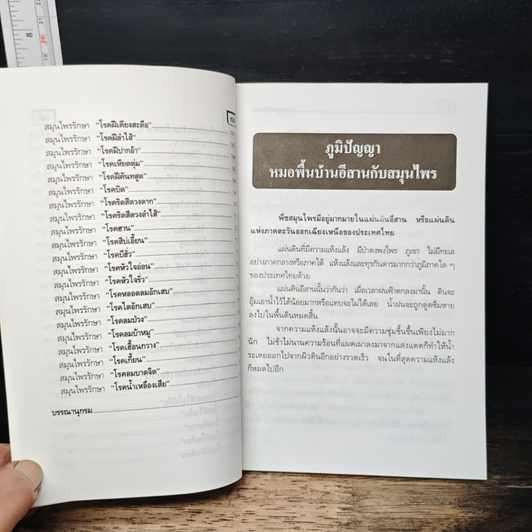 สมุนไพรรักษา "โรคฝีเคียงสะดือ"
สมุนไพรรักษา "โรคฝีลำไส้"
สมุนไพรรักษา "โรคฝีปากอ้า"
สมุนไพรรักษา "โรคเหือดตุ่ม"
สมุนไพรรักษา "โรคฝีต้นทสูด"
สมุนไพรรักษา "โรคบิด"
สมุนไพรรักษา "โรคริดสีดวงตาก"
สมุนไพรรักษา "โรคริดสีดวงลำไส้"
สมุนไพรรักษา "โรคสาน"
สมุนไพรรักษา "โรคสิบเอี้ยน"
สมุนไพรรักษา "โรคบีฮั่ว"
สมุนไพรรักษา "โรคหัวใจอ่อน"
สมุนไพรรักษา "โรคหัวใจรั่ว"
สมุนไพรรักษา "โรคหลอดลมอักเสบ"
สมุนไพรรักษา "โรคไตอักเสบ"
สมุนไพรรักษา "โรคลมป่วง"
สมุนไพรรักษา "โรคลมบ้าหมู"
สมุนไพรรักษา "โรคเฮื้อนกวาง"
สมุนไพรรักษา "โรคเกี้ยน"
สมุนไพรรักษา "โรคลมบาดจิต"
สมุนไพรรักษา "โรคน้ำเหลืองเสีย"
บรรณานุกรม
ภูมิปัญญา
หมอพื้นบ้านอีสานกับสมุนไพร
พืชสมุนไพรมีอยู่มากมายในแผ่นดินอีสาน หรือแผ่นดิน
แห่งภาคตะวันออกเฉียงเหนือของประเทศไทย
แผ่นดินที่มีความแห้งแล้ง มีป่าดงพงไพร ภูเขา ไม่มีทะเล
อย่างภาคกลางหรือภาคใต้ แห้งแล้งและทุรกันดารมากกว่าภูมิภาคใด ๆ
ของประเทศไทยด้วย
แผ่นดินอีสานนั้นว่ากันว่า เมื่อเวลาฝนฟ้าตกลงมานั้น ดินจะ
อุ้มเอาน้ำไว้ได้น้อยมากหรือแทบจะไม่ได้เลย น้ำฝนจะถูกดูดซึมหาย
ลงไปในพื้นดินหมดสิ้น
จากความแห้งแล้งนั้นอาจจะมีความชุ่มชื้นขึ้นเพียงไม่มาก
นัก ไม่ช้าไม่นานความร้อนที่แผดเผาลงมาจากแสงแดดก็ทำให้น้ำ
ระเหยออกไปจากผิวดินอีกอย่างรวดเร็ว จนในที่สุดความแห้งแล้ง
ก็หมดไปอีก